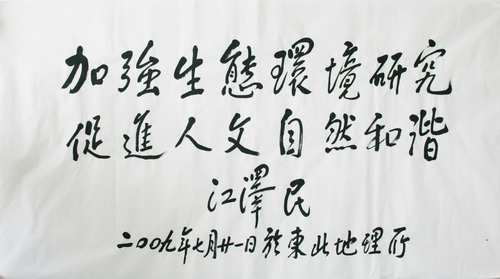 加強生態環境研究
促進人文自然和諧
江澤民
二〇〇九年七月廿一日於東北地理所